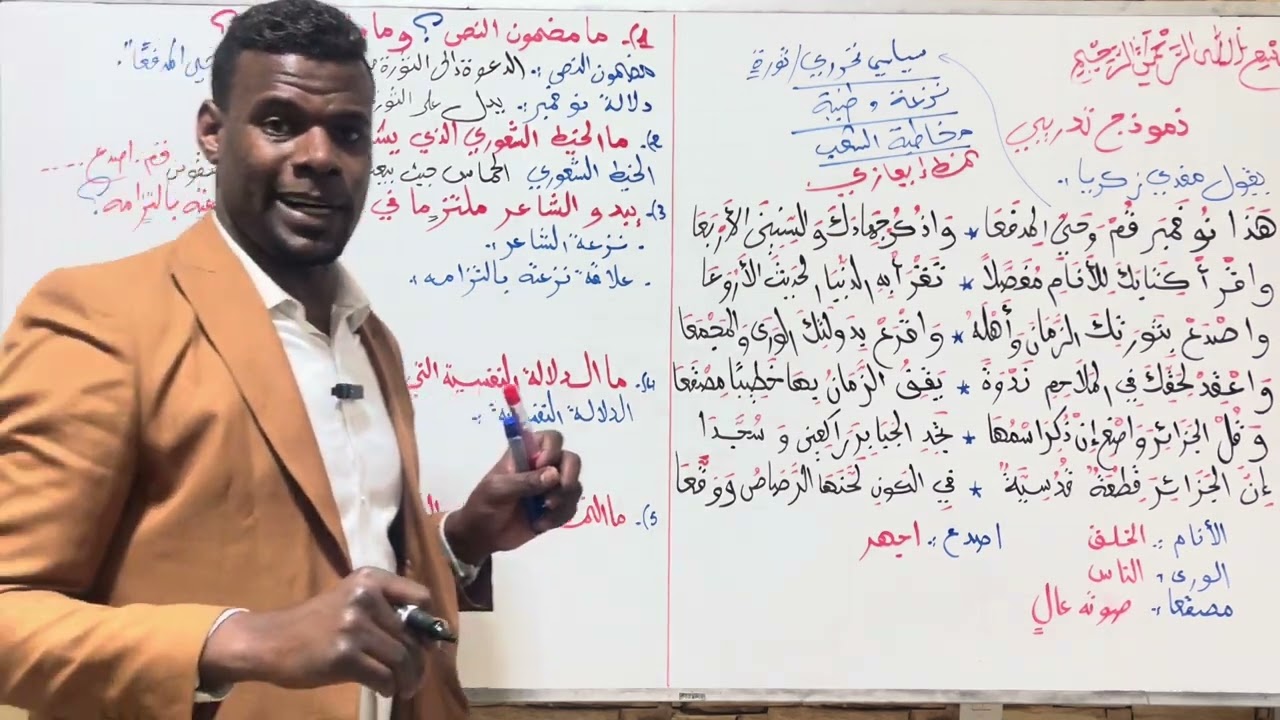 بسم الله الرحمن الرحيم
نموذج تدريبي
يقول مفدي زكريا :.
سياسي تحرري / ثورة
نزعة وطنية
مخاطبة الشعب
نمط إيعازي
هَذَا نُوفَمبر قُمْ وَحَيِّ المِدفَعَا * وَاذكُر جِهَادَكَ وَالسِّنِينَ الأَربَعَا
واقْرَأ كِتَابَكَ لِلأَنَامِ مُفَصَّلاً * تَقْرَأ بِهِ الدُّنيَا الحَدِيثَ الأَروَعَا
واصْدَعْ بِثَورَتِكَ الزَّمَانَ وَأَهْلَهُ * وَاقْرَعْ بِدَولَتِكَ الوَرَى وَالمَجْمَعَا
وَاعْقِدْ لِحَقِّكَ فِي المَلَاحِمِ نَدْوَةً * يَقِفُ الزَّمَانُ بِهَا خَطِيبًا مِصْقَعَا
وَقُلْ الجَزَائِر وَاصْغِ إِن ذُكِرَ اسْمُهَا * تَجِد الجَبَابِرَ رَاكِعِينَ وَسُجَّدَا
إِنَّ الجَزَائِرَ قِطْعَةٌ قُدْسِيَّةٌ * فِي الكَونِ لَحَّنَهَا الرَّصَاصُ وَوَقَّعَا
الأنام :. الخلق
اصدع :. اجهر
الورى :. الناس
مصقعا :. صوته عالٍ
1). ما مضمون النص ؟ وما ؟
مضمون النص :. الدعوة إلى الثورة حيي المدفعًا".
دلالة نوفمبر :. يدل على الثورة
2). ما الخيط الشعوري الذي
الخيط الشعوري الحماس حيث النفوس قم . اصدع ....
3). يبدو الشاعر ملتزما في بالتزامه ؟
. نزعة الشاعر :.
. علاقة نزعته بالتزامه :.
4). ما الدلالة النفسية التي
الدلالة النفسية :.
5). ما